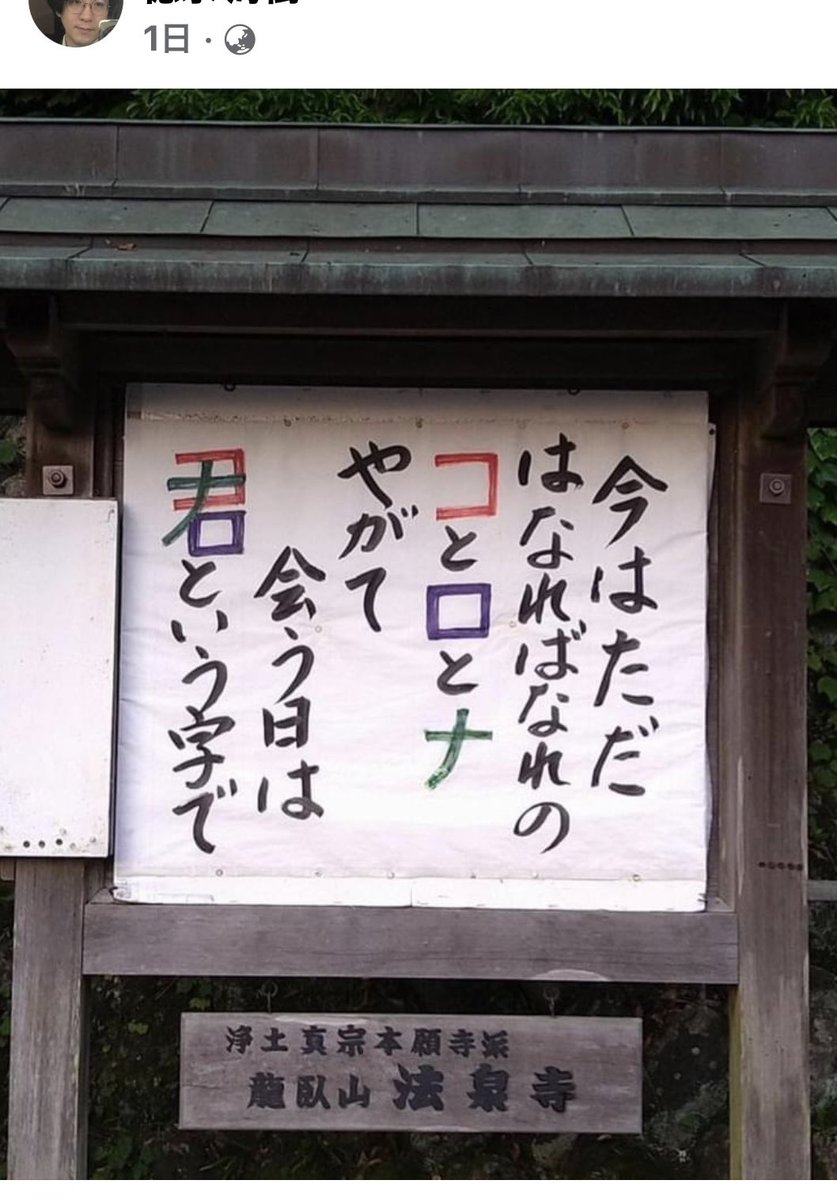 1日
今はただ
はなればなれの
コとロとナ
やがて
会う日は
君という字で
浄土真宗本願寺派
龍臥山 法泉寺